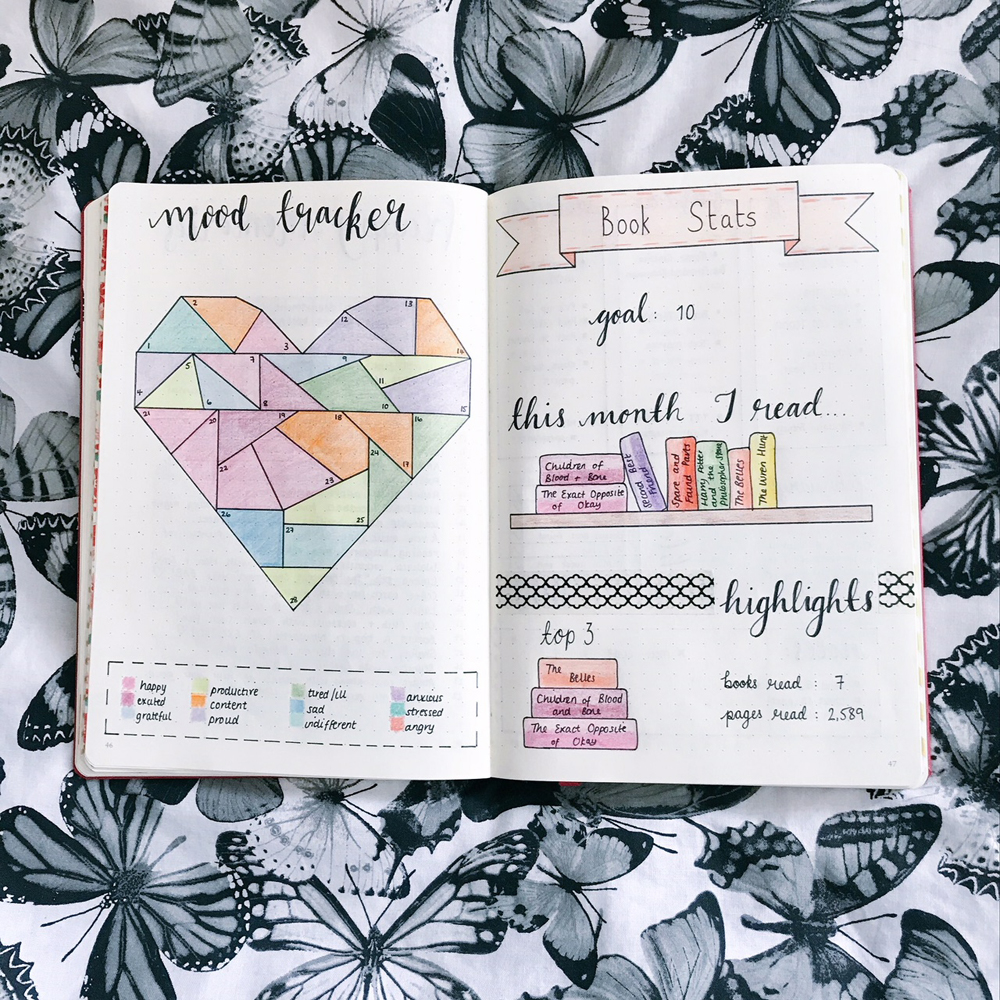 mood tracker
2
13
12
1
3
10
5
7
9
4
6
8
11
10
15
21
20
19
18
16
24
17
22
23
26
27
25
28
happy
exalted
grateful
productive
content
proud
tired/ill
sad
indifferent
anxious
stressed
angry
46
Book Stats
goal: 10
this month I read...
Children of
Blood + Bone
The Exact Opposite
of Okay
Second Best
Friend
Spare and
Found Parts
Harry Potter
and the
Philosopher Stone
The Belles
The Wren Hunt
highlights
top 3
The
Belles
Children of Blood
and Bone
The Exact Opposite
of Okay
books read : 7
pages read : 2,589
47